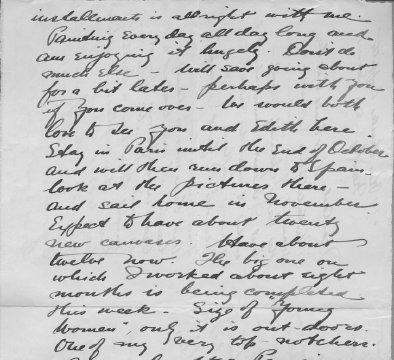 installments is all right with me.
Painting every day all day long and
am enjoying it hugely. Don't do
much else - Will save going about
for a bit later - perhaps with you
if you come over - We would both
love to see you and Edith here.
Stay in Paris until the end of October
and will then run down to Spain -
look at the pictures there -
and sail home in November.
Expect to have about twenty
new canvases. Have about
twelve now. The big one on
which I worked about eight
months is being completed
this week - Size of "Young
Women", only it is out-doors.
One of my very top-notchers.